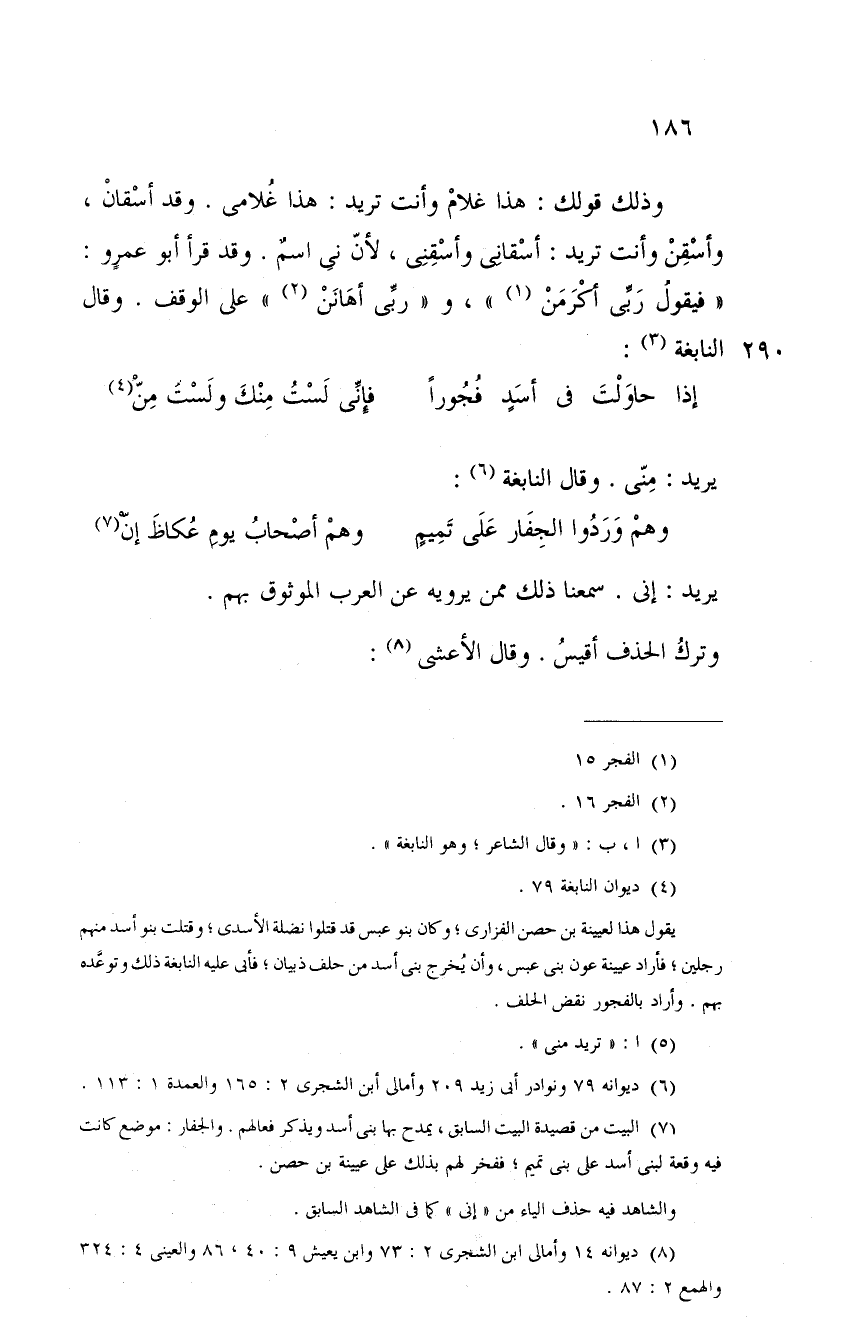 ١٨٦
وذلك قولك : هذا غلامْ وأنت تريد : هذا غُلامى . وقد أسْقانْ ،
وأسْقِنْ وأنت تريد : أسْقانِى وأسْقِنِى ، لأنّ نِى اسمٌ . وقد قرأ أبو عمرٍو :
« فيقولُ رَبِّى أكْرَمَنْ (١) » ، و « ربِّى أهَانَنْ (٢) » على الوقف . وقال
٢٩٠ النابغة (٣) :
إذا حاوَلْتَ فى أسَدٍ فُجُوراً فإِنِّى لَسْتُ مِنْكَ ولَسْتَ مِنّْ(٤)
يريد : مِنّى . وقال النابغة (٦) :
وهمْ وَرَدُوا الجِفَار عَلَى تَمِيمٍ وهمْ أصْحابُ يومِ عُكاظَ إنّْ(٧)
يريد : إنى . سمعنا ذلك ممن يرويه عن العرب الموثوق بهم .
وتركُ الحذف أقيسُ . وقال الأعشى (٨) :
(١) الفجر ١٥
(٢) الفجر ١٦ .
(٣) ا ، ب : « وقال الشاعر ؛ وهو النابغة » .
(٤) ديوان النابغة ٧٩ .
يقول هذا لعيينة بن حصن الفزارى ؛ وكان بنو عبس قد قتلوا نضلة الأسدى ؛ وقتلت بنو أسد منهم
رجلين ؛ فأراد عيينة عون بنى عبس ، وأن يُخرج بنى أسد من حلف ذبيان ؛ فأبى عليه النابغة ذلك وتوعَّده
بهم . وأراد بالفجور نقض الحلف .
(٥) ا : « تريد منى » .
(٦) ديوانه ٧٩ ونوادر أبى زيد ٢٠٩ وأمالى أبن الشجرى ٢ : ١٦٥ والعمدة ١ : ١١٣ .
(٧) البيت من قصيدة البيت السابق ، يمدح بها بنى أسد ويذكر فعالهم . والجفار : موضع كانت
فيه وقعة لبنى أسد على بنى تميم ؛ ففخر لهم بذلك على عيينة بن حصن .
والشاهد فيه حذف الياء من « إنى » كما فى الشاهد السابق .
(٨) ديوانه ١٤ وأمالى ابن الشجرى ٢ : ٧٣ وابن يعيش ٩ : ٤٠ ، ٨٦ والعينى ٤ : ٣٢٤
والهمع ٢ : ٨٧ .